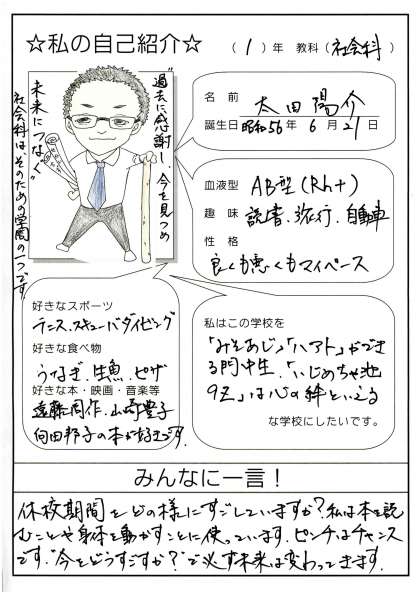 ☆私の自己紹介☆
（1）年 教科（社会科）
"過去に感謝し、今を見つめ
未来につなぐ"
社会科は、そのための学問の一つです。
名前 太田陽介
誕生日 昭和56年 6月 21日
血液型 AB型(Rh+)
趣味 読書、旅行、自動車
性格
良くも悪くもマイペース
好きなスポーツ
テニス、スキューバダイビング
好きな食べ物
うなぎ、生魚、ピザ
好きな本・映画・音楽等
遠藤周作、山崎豊子
向田邦子の本が好きです。
私はこの学校を
「みそあじ」「ハアト」ができ
る門中生、「いじめちゃ池
92」は心の絆といえる
な学校にしたいです。
みんなに一言！
休校期間をどの様にすごしていますか？私は本を読
むことや身体を動かすことに使っています。ピンチはチャンス
です。"今をどうすごすか？"で必ず未来は変わってきます。